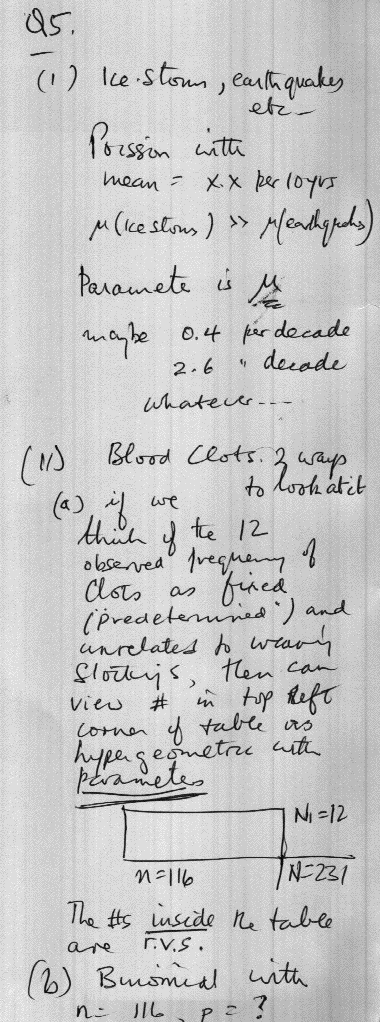 Q5.
(i) Ice-storm, earthquakes
etc-
Poisson with
mean = x.x per 10 yrs
μ(ice storms) >> μ(earthquakes)
Parameter is μ
maybe 0.4 per decade
2.6 " decade
whatever---
(ii) Blood Clots. 2 ways
to look at it
(a) if we
think of the 12
observed frequency of
Clots as fixed
("predetermined") and
unrelated to wearing
Stockings, then can
view # in top left
corner of table as
hypergeometric with
parameters
N1=12
n=116 N=231
The #s inside the table
are r.v.s.
(b) Binomial with
n= 116, p = ?